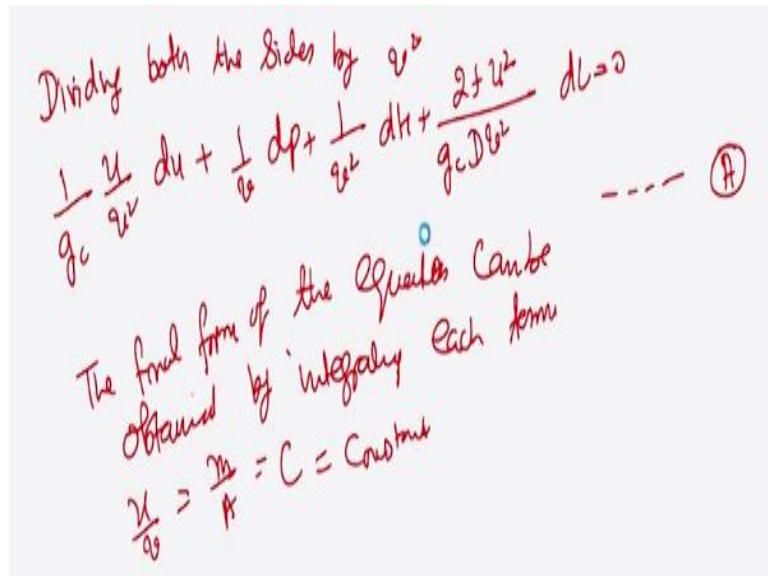 Dividing both the sides by v²
1/g_c u/v² du + 1/v dp + 1/v² dH + 2fu²/g_c Dv² dL = 0
---- (A)
The final form of the equation can be
obtained by integrating each term
u/v = m/A = C = Constant